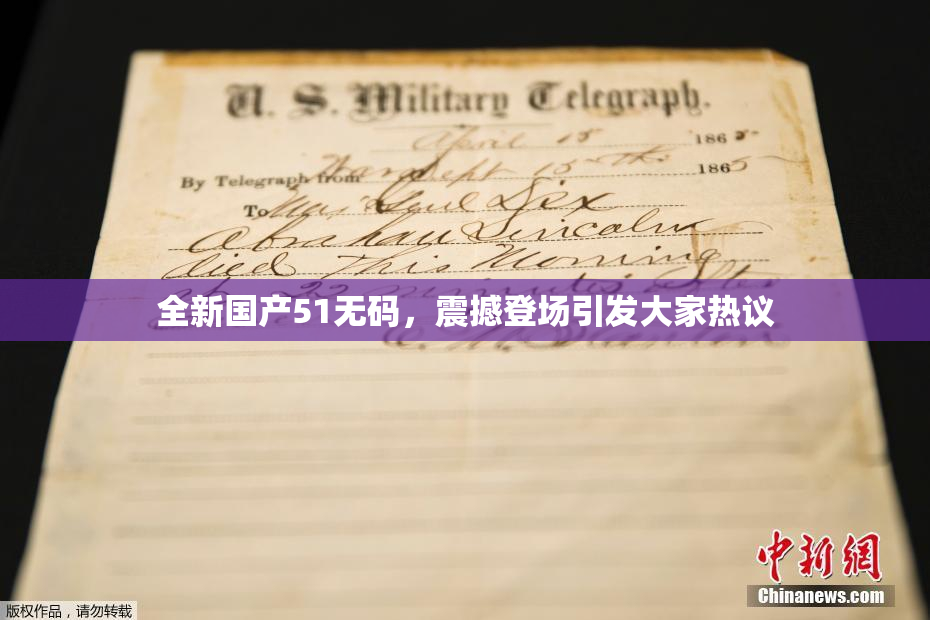 U. S. Military Telegraph.
April 15 1865
By Telegraph from War Dept 15th 1865
To Maj Genl Dix
Abraham Lincoln
died This Morning
at 22 minutes after
全新国产51无码，震撼登场引发大家热议
E. M. Stanton
中新網
Chinanews.com
版权作品，请勿转载